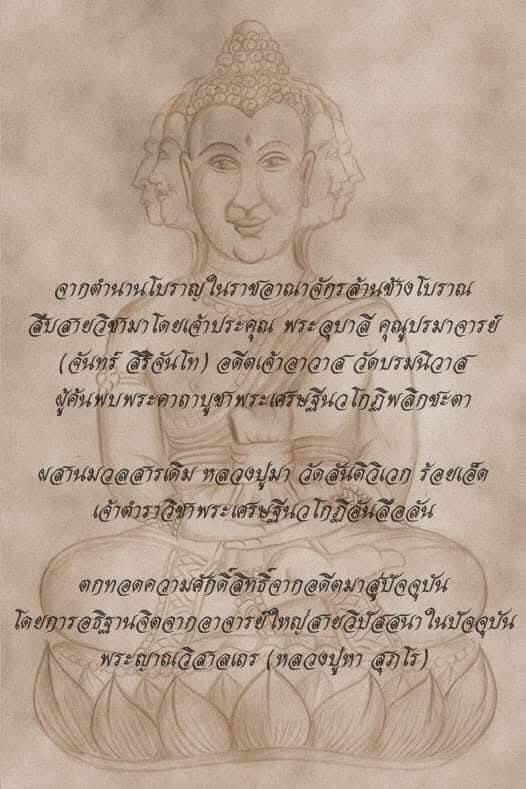 จากตำนานโบราญในราชอาณาจักรล้านช้างโบราณ
สืบสายวิชามาโดยเจ้าประคุณ พระอุบาลี คุณูปรมาจารย์
(จันทร์ สิริจันโท) อดีตเจ้าอาวาส วัดบรมนิวาส
ผู้ค้นพบพระคาถาบูชาพระเศรษฐีนวโกฏิพลิกชะตา
ผสานมวลสารเดิม หลวงปู่มา วัดสันติวิเวก ร้อยเอ็ด
เจ้าตำราวิชาพระเศรษฐีนวโกฏิอันลือลั่น
ตกทอดความศักดิ์สิทธิ์จากอดีตมาสู่ปัจจุบัน
โดยการอธิฐานจิตจากอาจารย์ใหญ่สายวิปัสสนาในปัจจุบัน
พระญาณวิสาลเถร (หลวงปู่หา สุภโร)